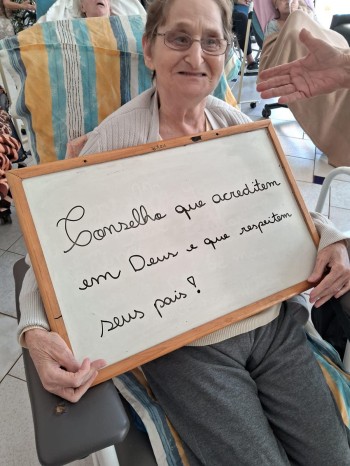 Conselho que acreditem
em Deus e que respeitem
seus pais!